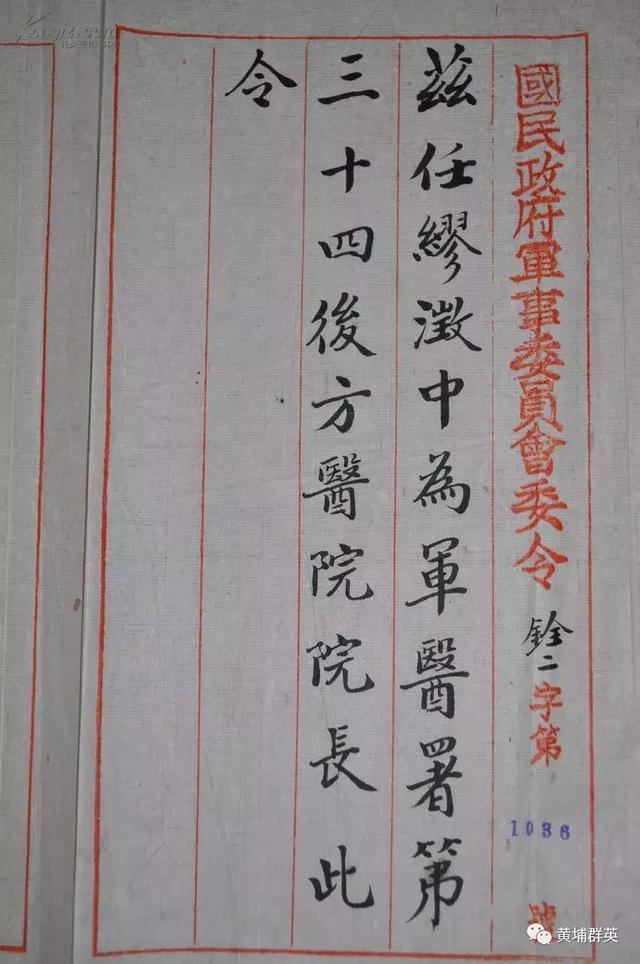 國民政府軍事委員會委令 銓二字第 1036 號
茲任繆澂中為軍醫署第
三十四後方醫院院長此
令
黄埔群英